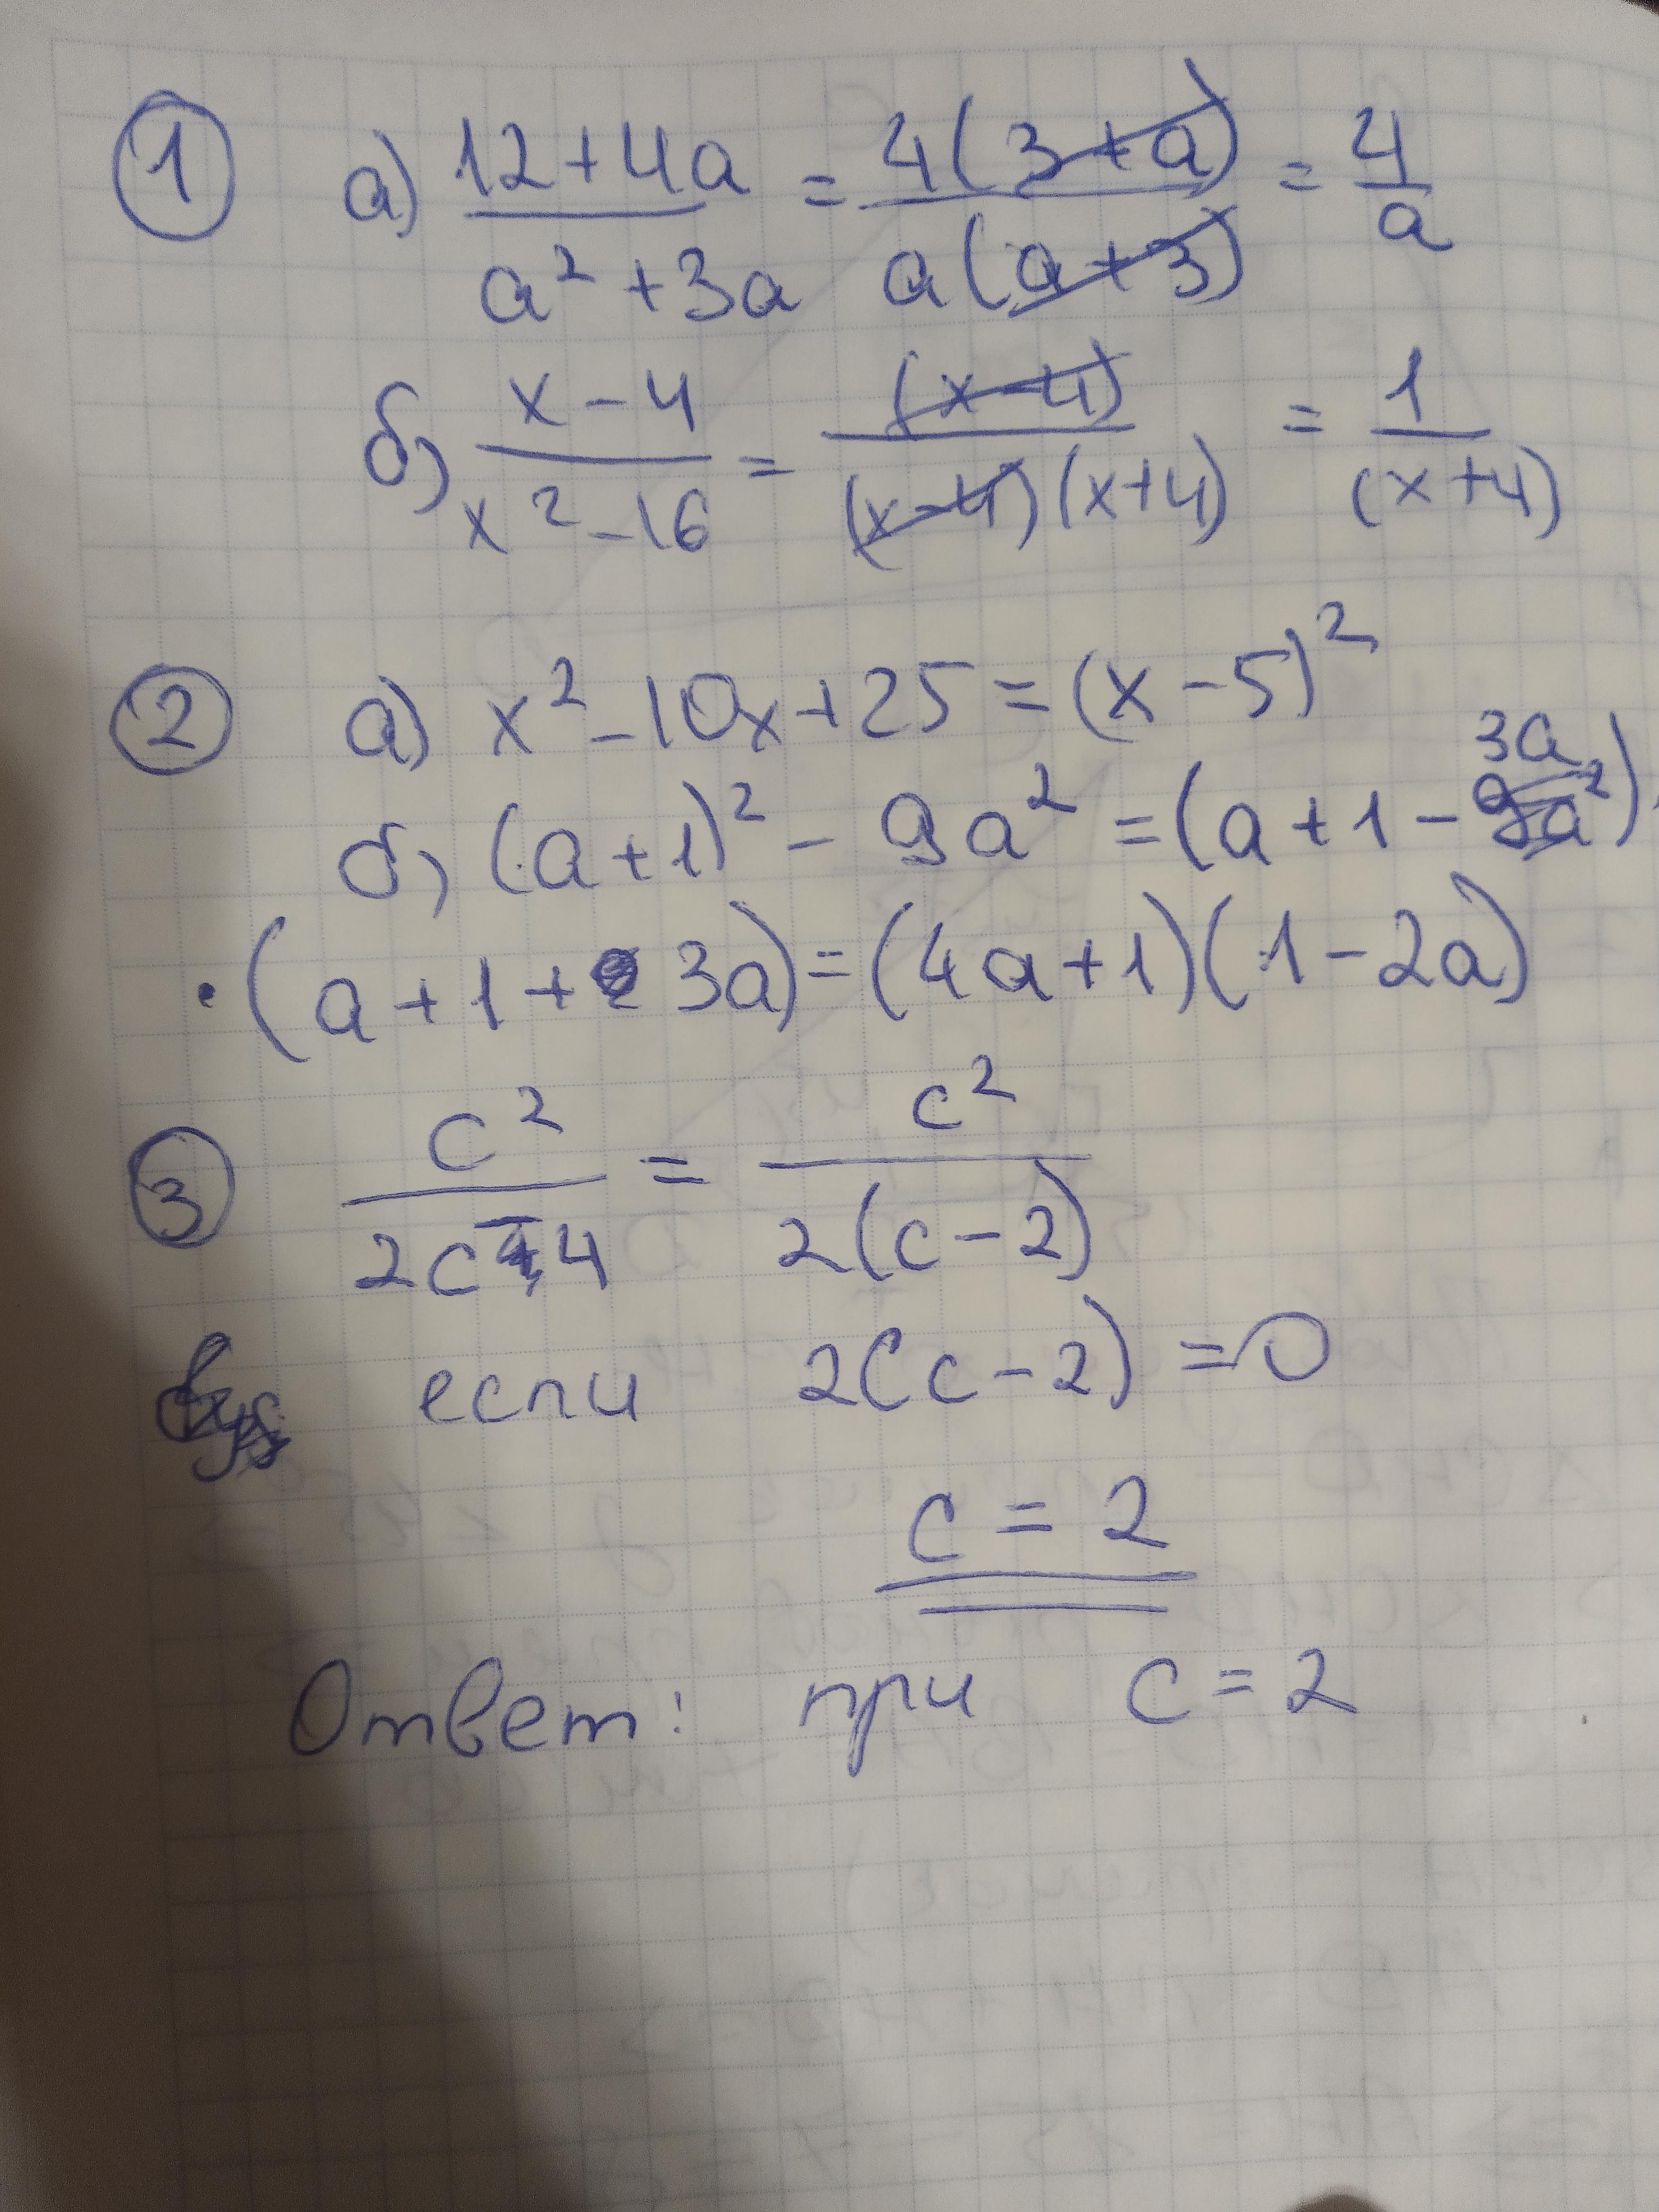 1 а) 12+4a / a² +3a = 4(3+a) / a(a+3) = 4 / a
б) x-4 / x²-16 = (x-4) / (x-4)(x+4) = 1 / (x+4)
2 а) x²-10x+25=(x-5)²
б) (a+1)² - 9a² =(a+1-3a)·
·(a+1+3a)=(4a+1)(1-2a)
3 c² / 2c-4 = c² / 2(c-2)
если 2(c-2)=0
c = 2
Ответ: при c=2